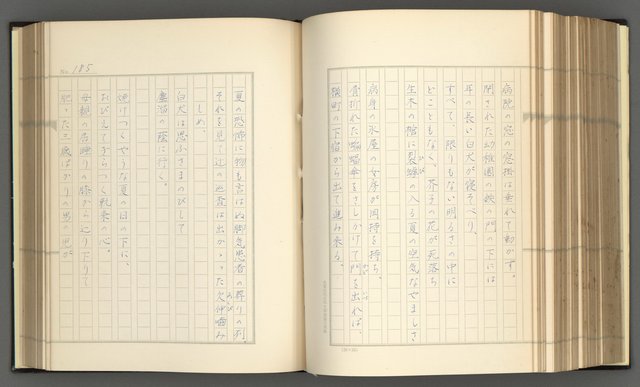 病院の窓の窓掛は垂れて動かず。
閉された幼稚園の鉄の門の下には
耳の長い白犬が寝そべり、
すべて、限りもない明るさの中に
どこともなく、芥子の花が死落ち
生木の棺に裂罅の入る夏の空気なやましさ
病身の氷屋の女房が岡持を持ち、
骨折れた蝙蝠傘をさしかけて門を出れば、
横町の下宿から出て進み来る、
No. 185
夏の恐怖に物も言はぬ脚気患者の葬りの列。
それを見て辻の巡査は出かゝった欠伸噛み
しめ、
白犬は思ふさまのびして
塵溜の蔭に行く。
焼けつくやうな夏の日の下に、
おびえてぎらつく軌条の心。
母親の居睡りの膝から辷り下りて
肥った三歳ばかりの男の児が